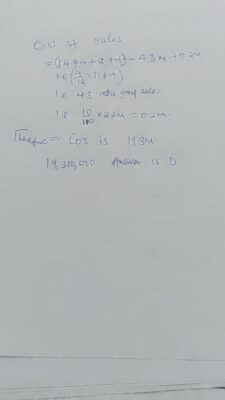 Cost of sales
= (14.7m + 8.7m) - 4.3m + 0.2m
12 43 intra group sale.
12 10/110 × 2.2m = 0.2m.
Therefore = Cos is 19.3m
19,300,000 Answer is D